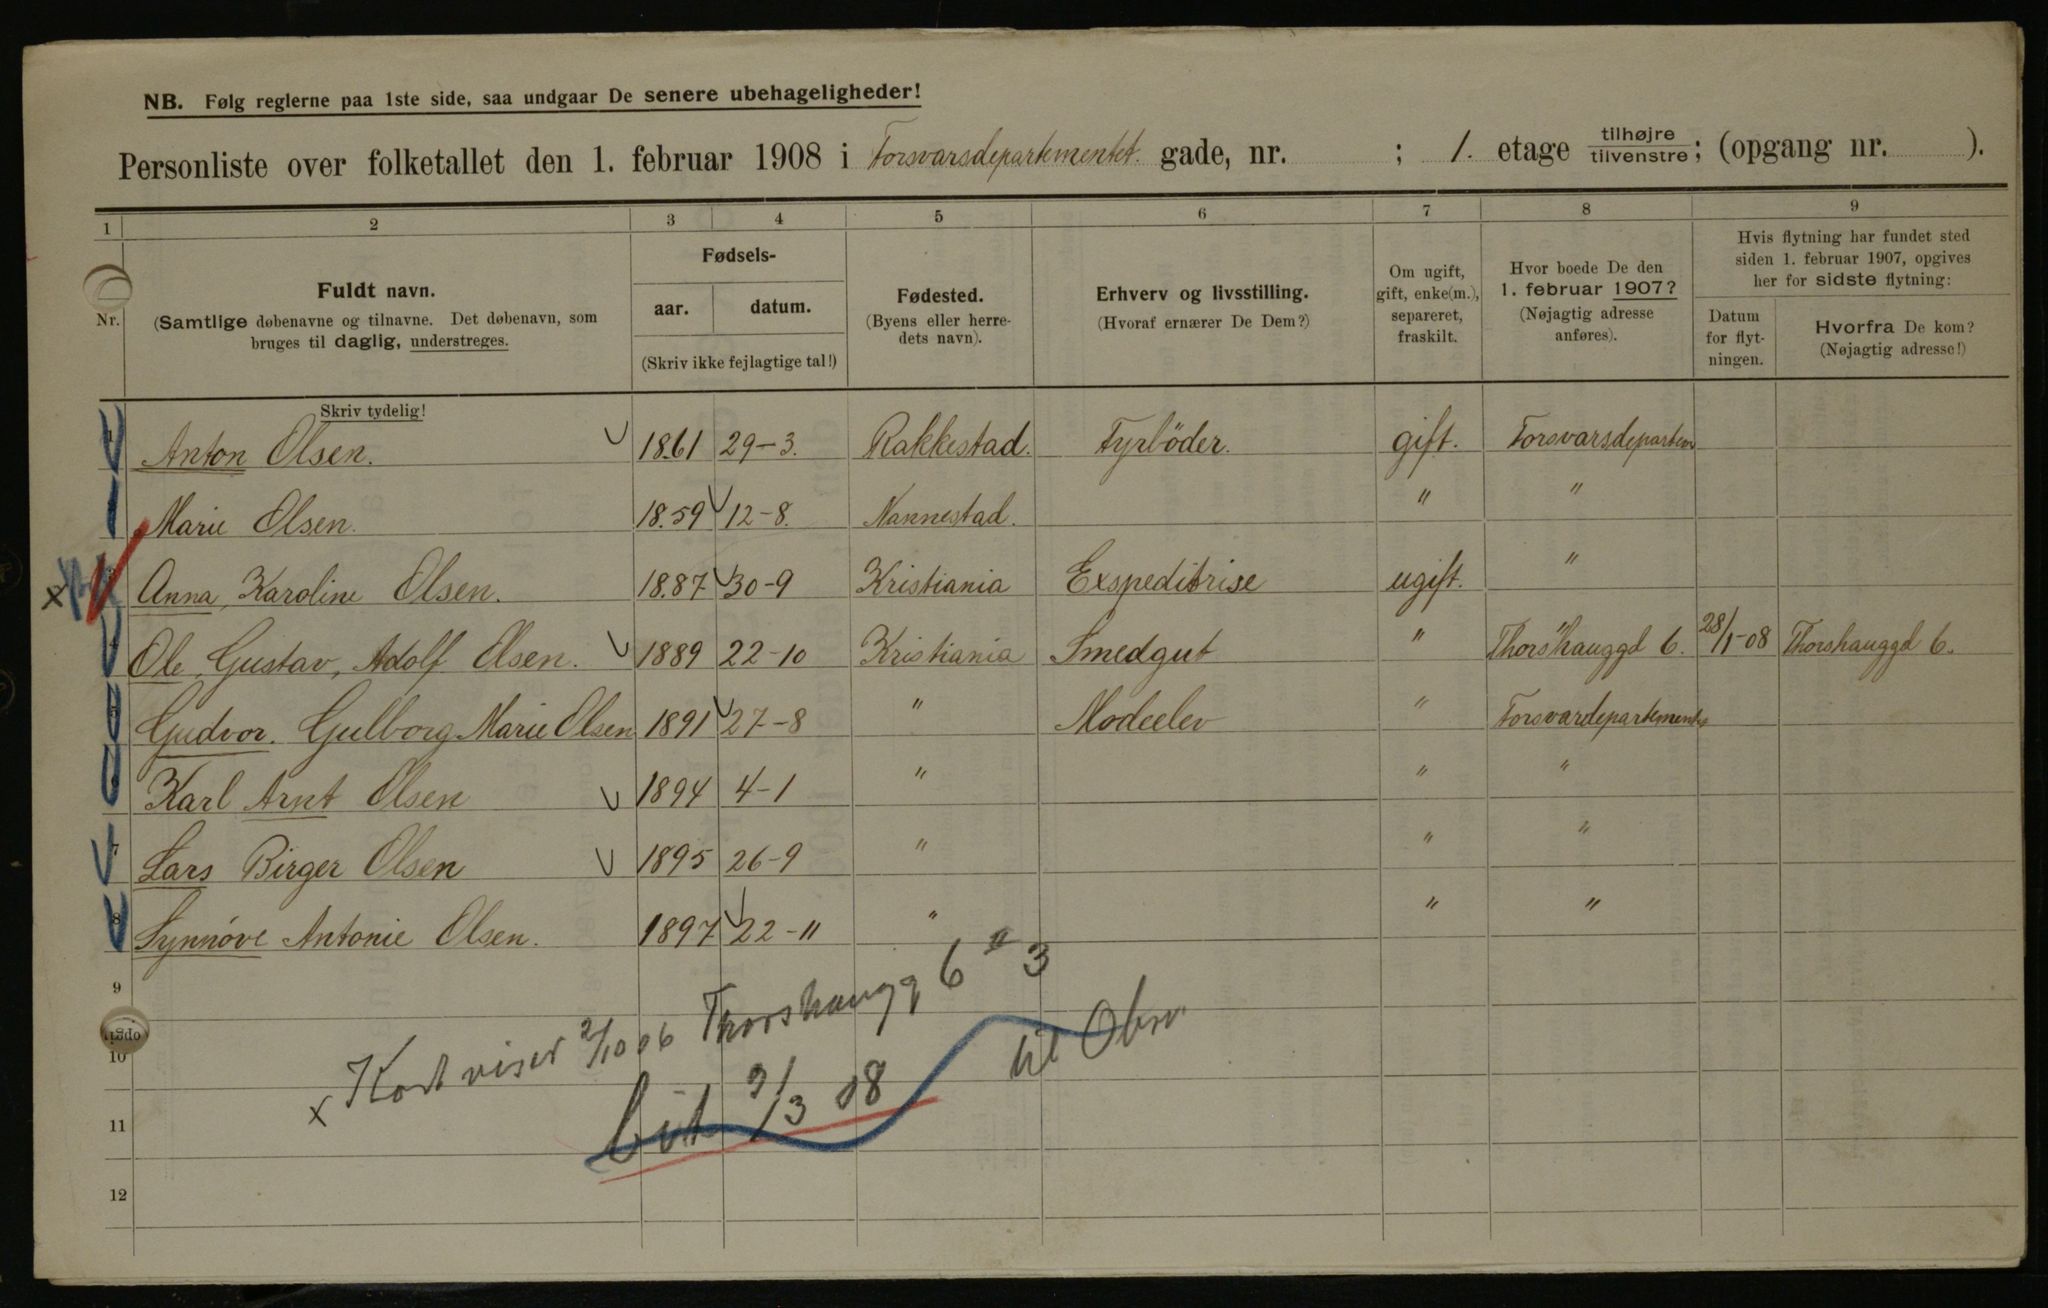 NB. Følg reglerne paa 1ste side, saa undgaar De senere ubehageligheder!
Personliste over folketallet den 1. februar 1908 i Forsvarsdepartementet. gade, nr. ; 1. etage tilhøjre tilvenstre; (opgang nr. ).
1 2 3 4 5 6 7 8 9
Nr.
Fuldt navn.
(Samtlige døbenavne og tilnavne. Det døbenavn, som
bruges til daglig, understreges.
Skriv tydelig!
Fødsels-
aar. datum.
(Skriv ikke fejlagtige tal!)
Fødested.
(Byens eller herre-
dets navn).
Erhverv og livsstilling.
(Hvoraf ernærer De Dem?)
Om ugift,
gift, enke(m.),
separeret,
fraskilt.
Hvor boede De den
1. februar 1907?
(Nøjagtig adresse
anføres).
Hvis flytning har fundet sted
siden 1. februar 1907, opgives
her for sidste flytning:
Datum
for flyt-
ningen.
Hvorfra De kom?
(Nøjagtig adresse!)
1 Anton Olsen. 1861 29-3. Rakkestad. Fyrböder. gift. Forsvarsdepartem
Marie Olsen. 1859 12-8. Nannestad. " "
x Anna, Karoline Olsen. 1887 30-9 Kristiania Exspeditrise ugift. "
Ole, Gustav, Adolf Olsen. 1889 22-10 Kristiania Smedgut " Thorshauggd 6. 28/1-08 Thorshauggd 6.
Gudvor. Gulborg Marie Olsen 1891 27-8 " Modeelev " Forsvardepartements
Karl Arnt Olsen 1894 4-1 " " "
7 Lars Birger Olsen 1895 26-9 " " "
8 Synnøve Antonie Olsen. 1897 22-11 " " "
9
10
11
12
x Kort viser 2/10 06 Thorshaugg 6 II 3
3/3 08 til Obsv.